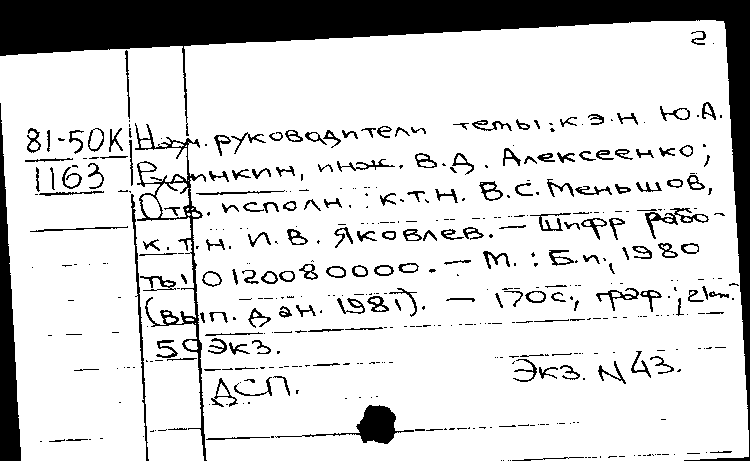 2
81-50К Науч. руководители темы: к.э.н. Ю.А.
1163 Рудинкин, инж. В.Д. Алексеенко;
Отв. исполн.: к.т.н. В.С. Меньшов,
к.т.н. И.В. Яковлев. — Шифр рабо-
ты 0120080000. — М.: Б.и., 1980
(вып. дан. 1981). — 170с., граф.;
50 экз.
ДСП. Экз. N 43.